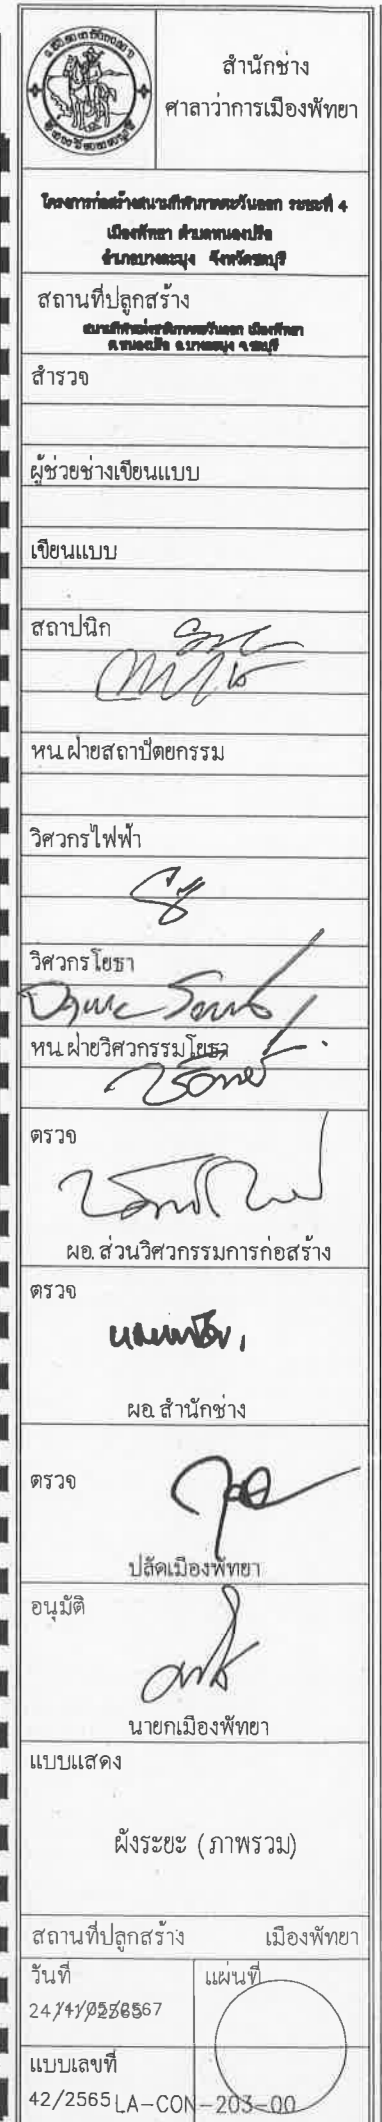 สำนักช่าง
ศาลาว่าการเมืองพัทยา
โครงการก่อสร้างสนามกีฬาภาคตะวันออก ระยะที่ 4
เมืองพัทยา ตำบลหนองปรือ
อำเภอบางละมุง จังหวัดชลบุรี
สถานที่ปลูกสร้าง
สนามกีฬาแห่งชาติภาคตะวันออก เมืองพัทยา
ต.หนองปรือ อ.บางละมุง จ.ชลบุรี
สำรวจ
ผู้ช่วยช่างเขียนแบบ
เขียนแบบ
สถาปนิก
หน.ฝ่ายสถาปัตยกรรม
วิศวกรไฟฟ้า
วิศวกรโยธา
หน.ฝ่ายวิศวกรรมโยธา
ตรวจ
ผอ.ส่วนวิศวกรรมการก่อสร้าง
ตรวจ
ผอ.สำนักช่าง
ตรวจ
ปลัดเมืองพัทยา
อนุมัติ
นายกเมืองพัทยา
แบบแสดง
ผังระยะ (ภาพรวม)
สถานที่ปลูกสร้าง เมืองพัทยา
วันที่ แผ่นที่
แบบเลขที่
42/2565 LA-CON-203-00